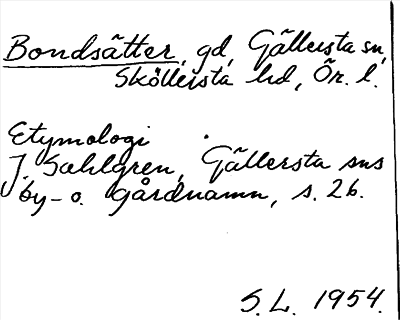 Bondsätter, gd, Gällersta sn,
Sköllersta hd, Ör. l.
Etymologi
J. Sahlgren, Gällersta sns
by- o. gårdnamn, s. 26.
S.L. 1954.